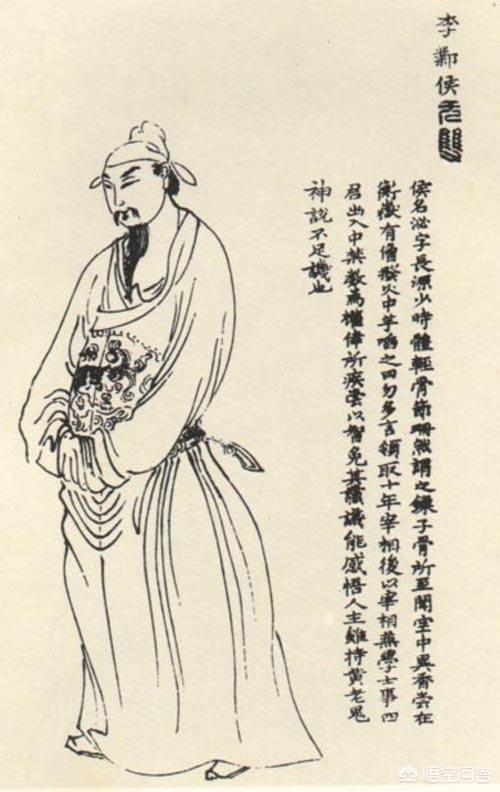 李鄴侯无雙
侯名泌字長源少時體輕骨節珊然謂之鎖子骨所至聞空中異香嘗在
衡嶽有僧撥火中芋啗之曰勿多言領取十年宰相後以宰相兼學士事四
君出入中禁數為權倖所疾嘗以智免其讜議能感悟人主雖持黃老鬼
神說不足譏也
悟空问答